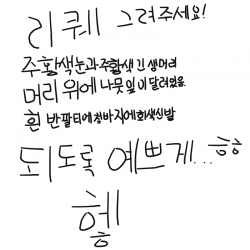 리퀘 그려주세요!
주황색눈과 주황색 긴 생머리
머리 위에 나뭇잎이 달려있음
흰 반팔티에 청바지에 회색신발
되도록 예쁘게... ㅎㅎ
헿